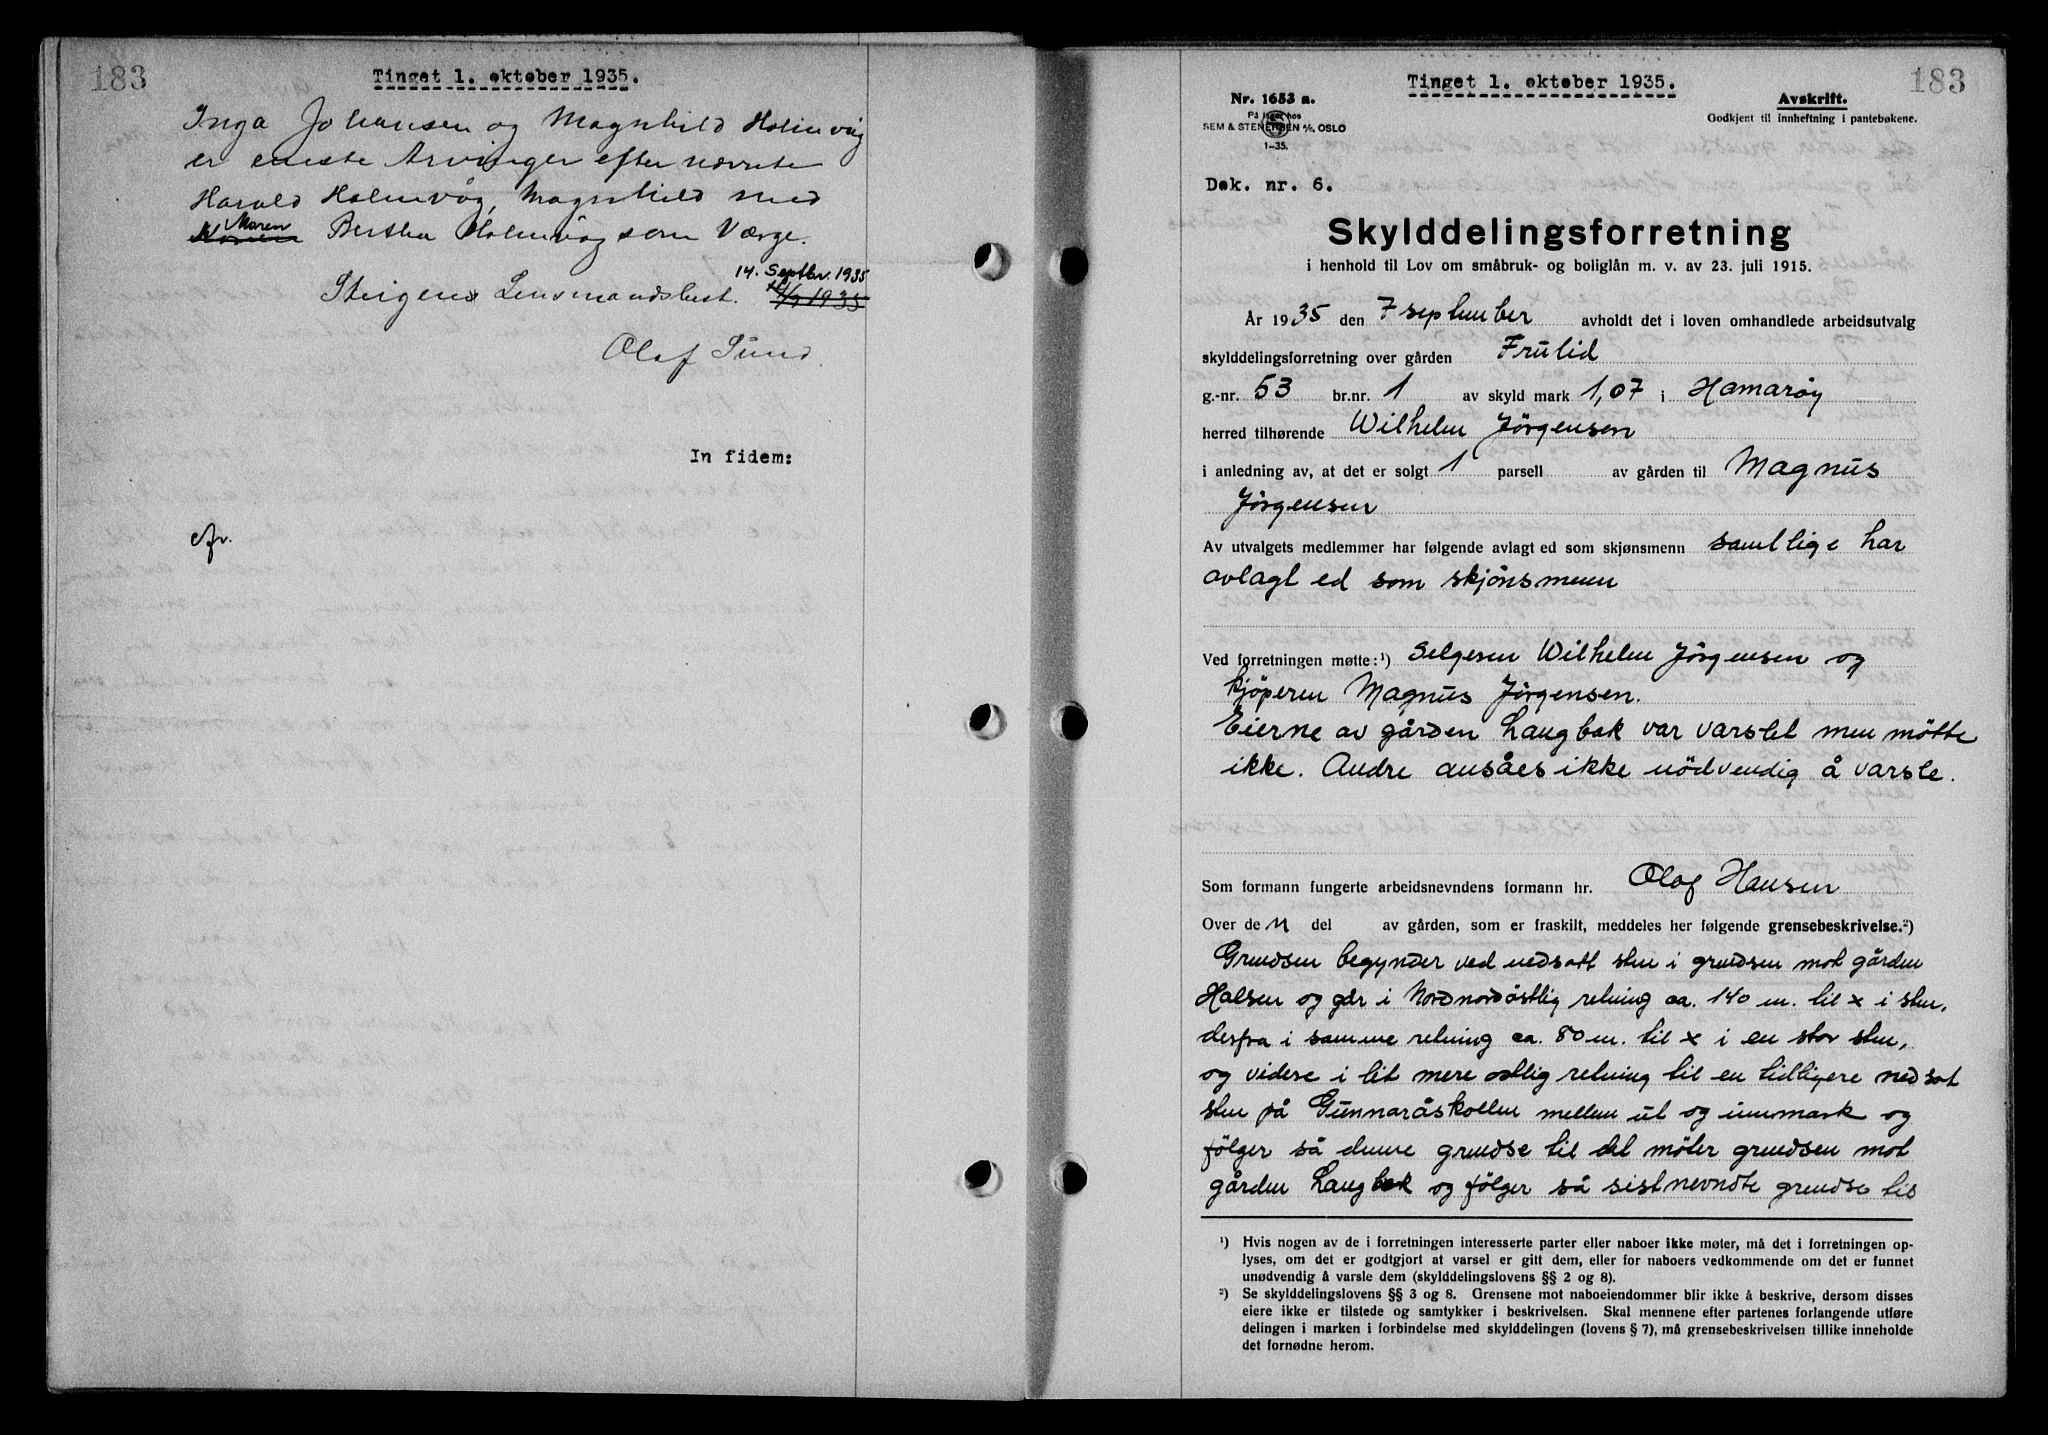 183
Tinget 1. oktober 1935.
Inga Johansen og Magnhild Holmvåg
er eneste Arvinger efter nævnte
Harald Holmvåg, Magnhild med
Maren
Bertha Holmvåg som Værge.
14. Septbr. 1935
Steigens Lensmandsbest. 14/9 1935
Olaf Sund
In fidem:
Tinget 1. oktober 1935.
183
Nr. 1653 a.
På lager hos
SEM & STENERSEN A/S. OSLO
1-35.
Avskrift.
Godkjent til innheftning i pantebøkene.
Dok. nr. 6.
Skylddelingsforretning
i henhold til Lov om småbruk- og boliglån m. v. av 23. juli 1915.
År 1935 den 7 september avholdt det i loven omhandlede arbeidsutvalg
skylddelingsforretning over gården Frulid
g.-nr. 53 br.nr. 1 av skyld mark 1,07 i Hamarøy
herred tilhørende Wilhelm Jörgensen
i anledning av, at det er solgt 1 parsell av gården til Magnus
Jörgensen
Av utvalgets medlemmer har følgende avlagt ed som skjønsmenn samtlige har
avlagt ed som skjönsmenn
Ved forretningen møtte:¹) Selgeren Wilhelm Jörgensen og
kjöperen Magnus Jörgensen.
Eierne av gården Langbak var varslet men mötte
ikke. Andre ansåes ikke nödvendig å varsle.
Som formann fungerte arbeidsnevndens formann hr. Olaf Hansen
Over de n del av gården, som er fraskilt, meddeles her følgende grensebeskrivelse.²)
Grendsen begynder ved nedsatt sten i grendsen mot gården
Halsen og går i Nordnordöstlig retning ca. 140 m. til x i sten,
derfra i samme retning ca. 80 m. til x i en stor sten,
og videre i lit mere ostlig retning til en tidligere nedsat
sten på Gunnaråskollen mellem ut og innmark og
fölger så denne grendse til det möter grendsen mot
gården Langbak og fölger så sistnevndte grendse til
¹) Hvis nogen av de i forretningen interesserte parter eller naboer ikke møter, må det i forretningen op-
lyses, om det er godtgjort at varsel er gitt dem, eller for naboers vedkommende om det er funnet
unødvendig å varsle dem (skylddelingslovens §§ 2 og 8).
²) Se skylddelingslovens §§ 3 og 8. Grensene mot naboeiendommer blir ikke å beskrive, dersom disses
eiere ikke er tilstede og samtykker i beskrivelsen. Skal mennene efter partenes forlangende utføre
delingen i marken i forbindelse med skylddelingen (lovens § 7), må grensebeskrivelsen tillike inneholde
det fornødne herom.